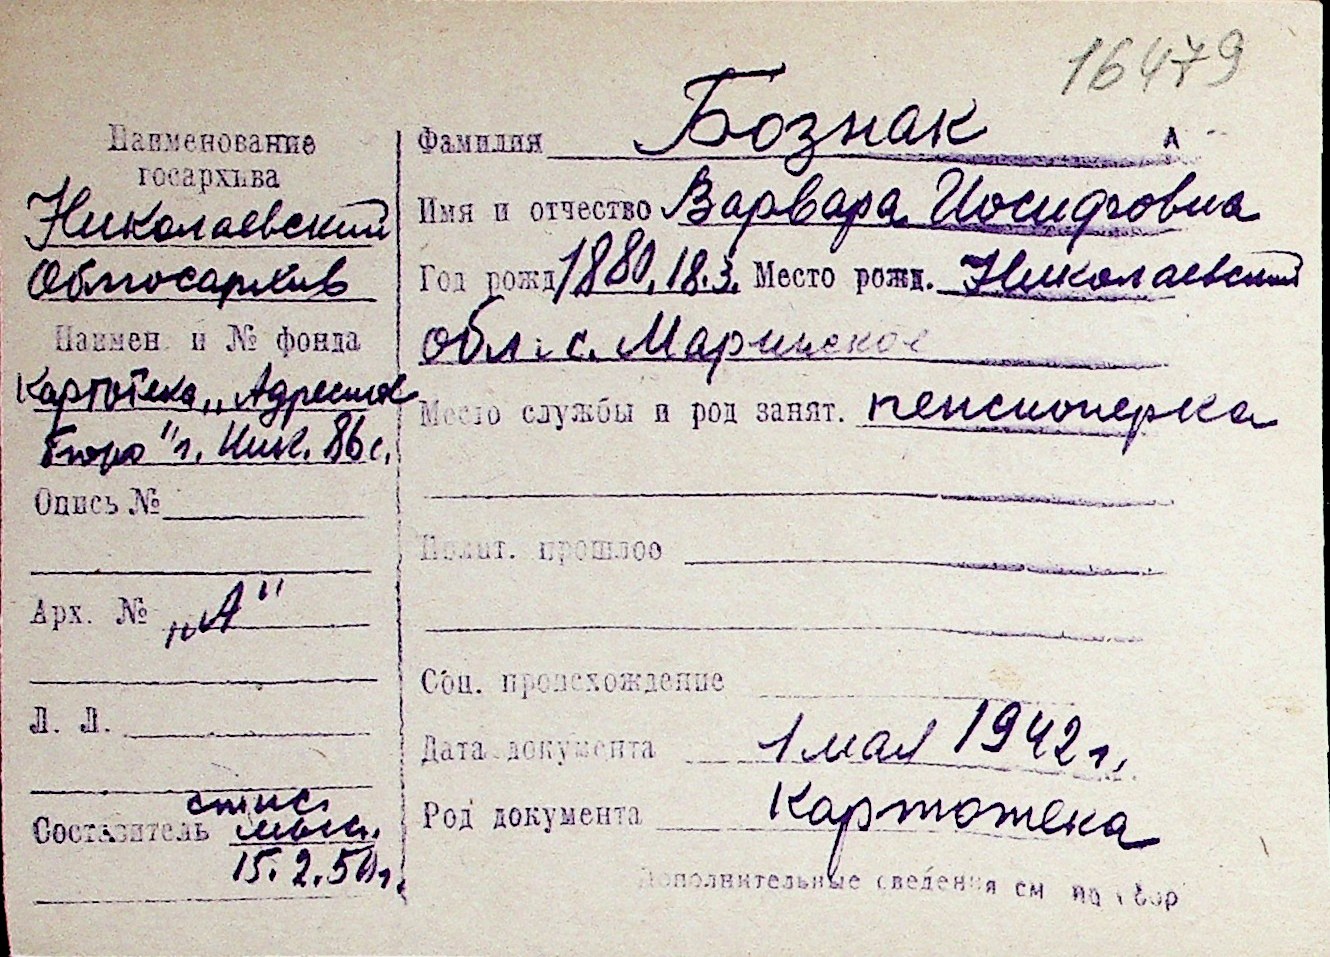 16479
Наименование
госархива
Николаевский
Облгосархив
Наимен и № фонда
Картотека „Адресное
бюро" г. Ник. 86 с.
Опись №
Арх. № „А"
Л. Л.
Составитель
15.2.50 г.
Фамилия Бознак А
Имя и отчество Варвара Иосифовна
Год рожд 1880, 18.3. Место рожд. Николаевский
обл. с. Маринское
Место службы и род занят. пенсионерка
Полит. прошлое
Соц. происхождение
Дата документа 1 мая 1942 г.
Род документа Картотека
Дополнительные сведения см на обор